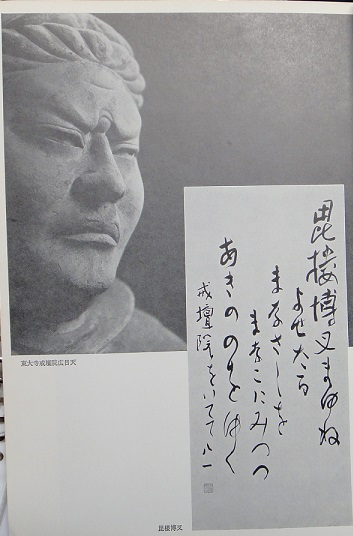 毘楼博叉まゆね
よせたる
まなさしを
まなこにみつつ
あきののをゆく
戒壇院をいてて 八一
東大寺戒壇院広目天
毘楼博叉